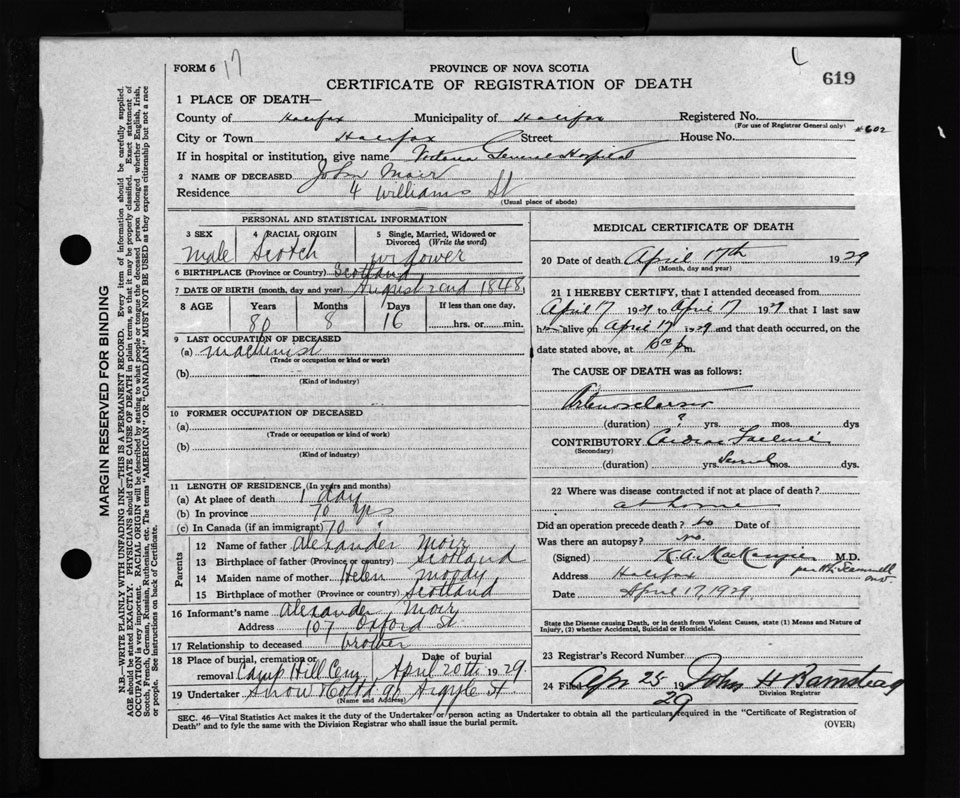 FORM 6
17
PROVINCE OF NOVA SCOTIA
CERTIFICATE OF REGISTRATION OF DEATH
619
1 PLACE OF DEATH—
County of Halifax Municipality of Halifax Registered No.
(For use of Registrar General only)
#602
City or Town Halifax Street House No.
If in hospital or institution, give name Victoria General Hospital
2 NAME OF DECEASED John Moir
Residence 4 Williams St
(Usual place of abode)
PERSONAL AND STATISTICAL INFORMATION
3 SEX 4 RACIAL ORIGIN 5 Single, Married, Widowed or Divorced (Write the word)
Male Scotch widower
6 BIRTHPLACE (Province or Country) Scotland
7 DATE OF BIRTH (month, day and year) August 2nd 1848
8 AGE Years Months Days If less than one day,
80 8 16 hrs. or min.
9 LAST OCCUPATION OF DECEASED
(a) Machinist
(Trade or occupation or kind or work)
(b)
(Kind of industry)
10 FORMER OCCUPATION OF DECEASED
(a)
(Trade or occupation or kind of work)
(b)
(Kind of industry)
11 LENGTH OF RESIDENCE (In years and months)
(a) At place of death 1 day
(b) In province 70 yrs
(c) In Canada (if an immigrant) 70 "
Parents
12 Name of father Alexander Moir
13 Birthplace of father (Province or country) Scotland
14 Maiden name of mother Helen Moody
15 Birthplace of mother (Province or country) Scotland
16 Informant's name Alexander Moir
Address 107 Oxford St
17 Relationship to deceased brother
18 Place of burial, cremation or removal Camp Hill Cem Date of burial April 20th 1929
19 Undertaker Snow & Co Ltd 90 Argyle St
(Name and Address)
MEDICAL CERTIFICATE OF DEATH
20 Date of death April 17th 1929
(Month, day and year)
21 I HEREBY CERTIFY, that I attended deceased from
April 17 1929 to April 17 1929 that I last saw
him alive on April 17 1929 and that death occurred, on the
date stated above, at m.
The CAUSE OF DEATH was as follows:
Arteriosclerosis
(duration) ? yrs. mos. dys
CONTRIBUTORY Cardiac Failure
(Secondary)
(duration) yrs. Several mos. dys.
22 Where was disease contracted if not at place of death?
at home
Did an operation precede death? no Date of
Was there an autopsy? no.
(Signed) K. A. MacKenzie M.D.
per
Address Halifax
Date April 17, 1929
State the Disease causing Death, or in death from Violent Causes, state (1) Means and Nature of Injury, (2) whether Accidental, Suicidal or Homicidal.
23 Registrar's Record Number
24 Filed Apr 25 1929 John H Barnstead
Division Registrar
SEC. 46—Vital Statistics Act makes it the duty of the Undertaker or person acting as Undertaker to obtain all the particulars required in the "Certificate of Registration of
Death" and to fyle the same with the Division Registrar who shall issue the burial permit.
(OVER)
MARGIN RESERVED FOR BINDING
N.B.—WRITE PLAINLY WITH UNFADING INK—THIS IS A PERMANENT RECORD. Every item of information should be carefully supplied.
AGE should be stated EXACTLY. PHYSICIANS should STATE CAUSE OF DEATH in plain terms, so that it may be properly classified. Exact statement of
OCCUPATION is very important. RACIAL ORIGIN will be described by stating to what people or tongue the deceased person belonged whether English, Irish,
Scotch, French, German, Russian, Ruthenian, etc. The terms "AMERICAN" OR "CANADIAN" MUST NOT BE USED as they express citizenship but not a race
or people. See instructions on back of Certificate.